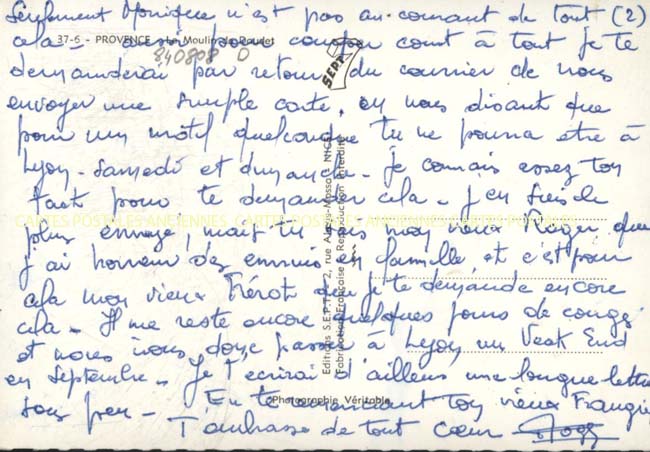 Seulement Monique n'est pas au courant de tout (2)
cela - aussi pour couper court à tout je te
37-6 - PROVENCE - Le Moulin de Daudet
840808 0
SEPT
demanderai par retour du courrier de nous
envoyer une simple carte, en nous disant que
pour un motif quelconque tu ne pourra etre à
Lyon - samedi et dimanche - je connais assez ton
tact pour te demander cela - j'en suis le
CARTES POSTALES ANCIENNES CARTES POSTALES ANCIENNES
plus ennuyé, mais tu sais mon vieux Roger que
j'ai horreur des ennuis en famille et c'est pour
cela mon vieux Frérot que je te demande encore
cela - Il me reste encore quelques jours de congé
et nous irons donc passer à Lyon un Veek End
en septembre - Je t'écrirai d'ailleurs une longue lettre
sous peu - En te remerciant ton vieux
Photographie Véritable
T'embrasse de tout cœur
Editions S.E.P.T. - 2, rue Alexis-Mossa - NICE
Fabrication Française - Reproduction Interdite